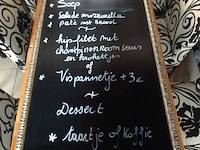 * Soep
* Salade mozzarella
* Paté met brood
+
* kipfilet met
champignonroomsaus
en kroketjes
of
* Vispannetje + 3€
+
Dessert
* taartje of koffie